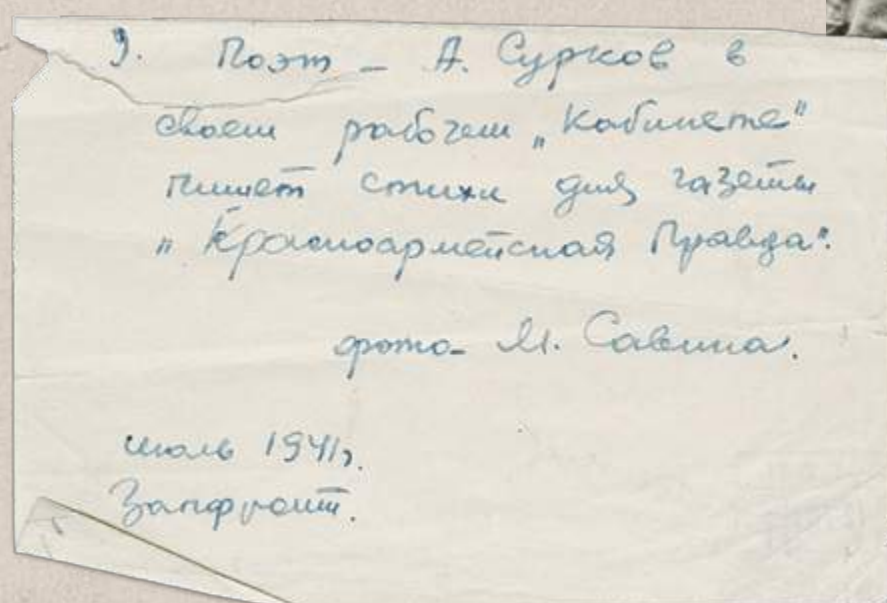 9. Поэт – А. Сурков в
своем рабочем „кабинете“
пишет стихи для газеты
„Красноармейская Правда“.
фото – М. Савина.
июль 1941г.
Запфронт.